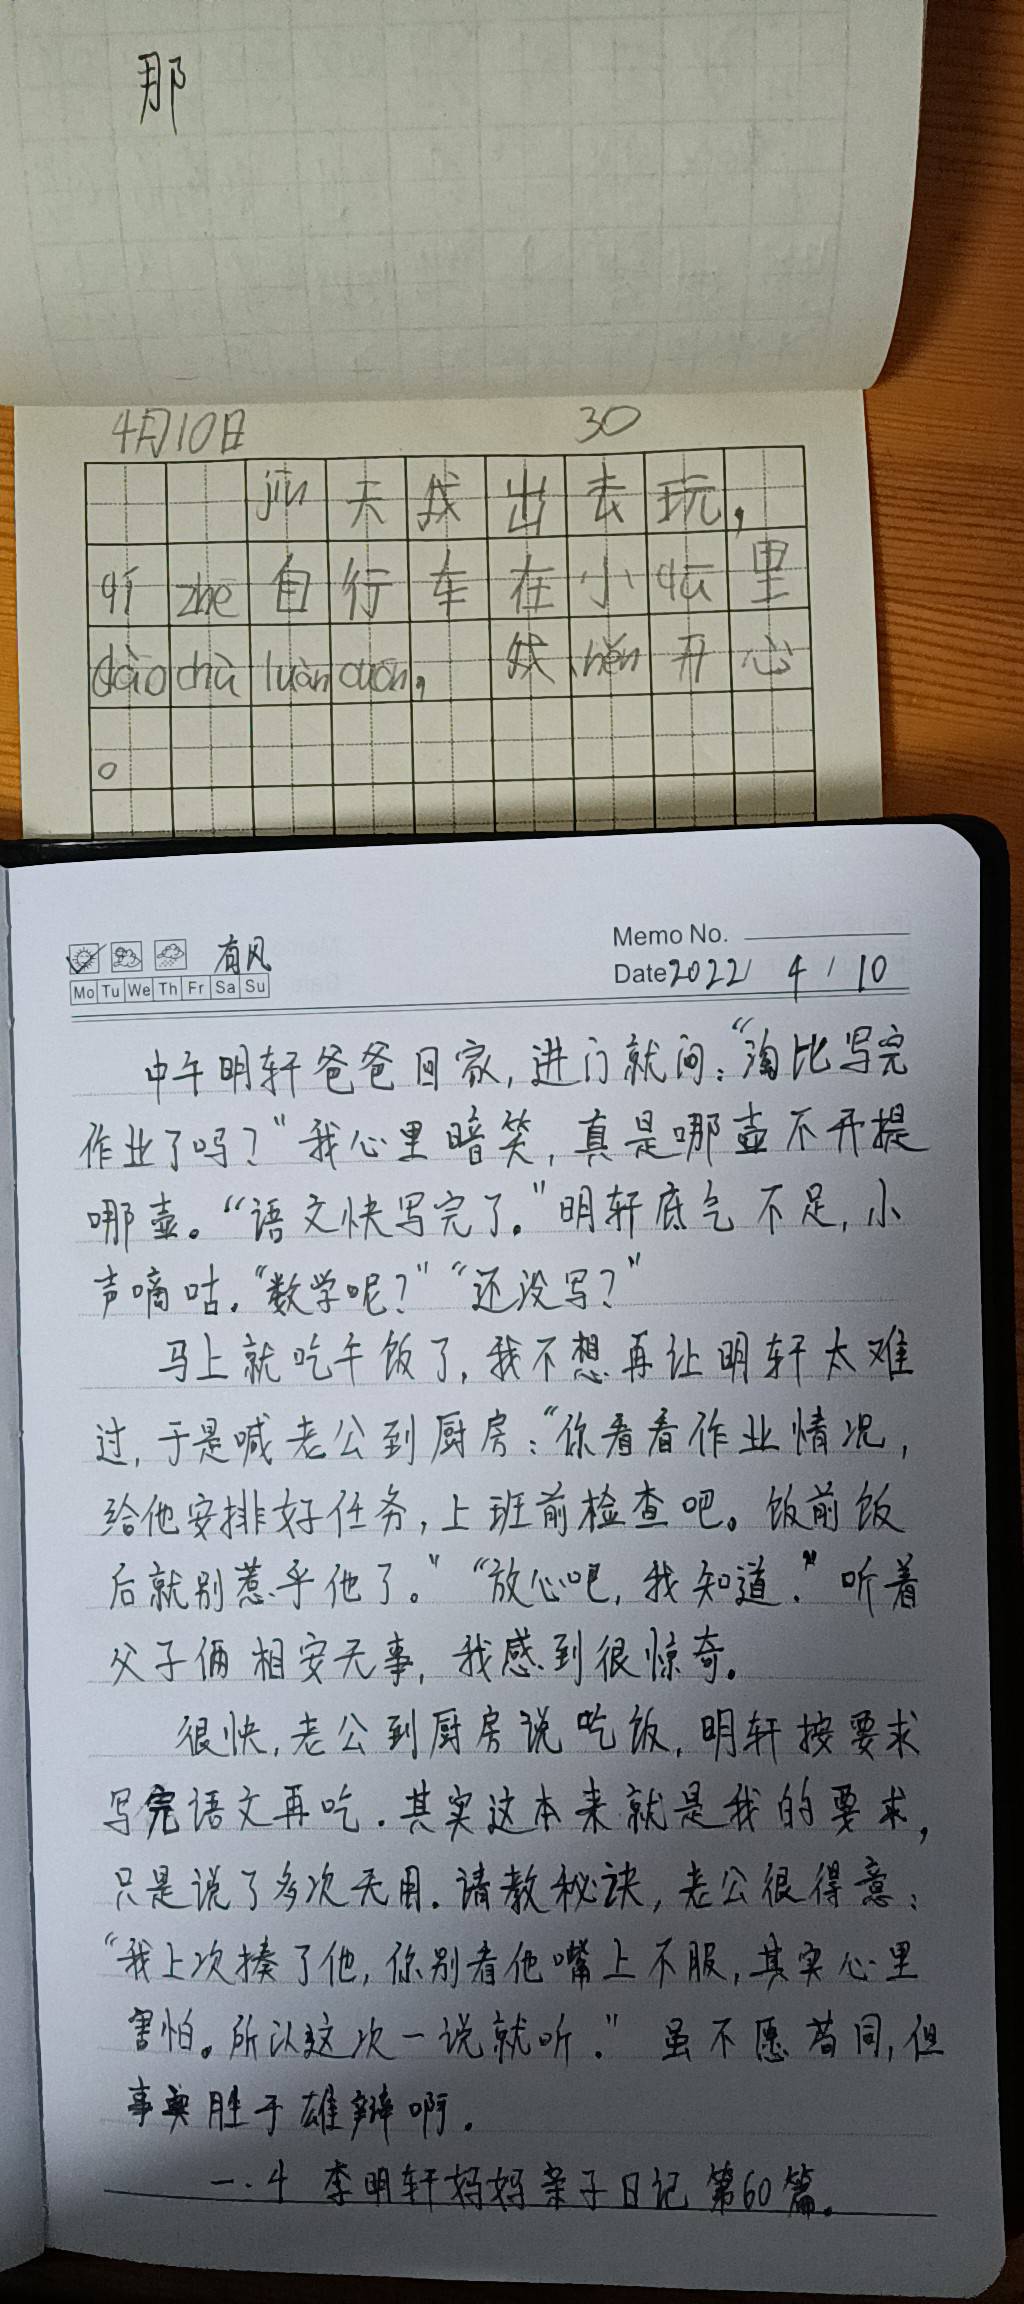 那
4月10日 30
jīn天我出去玩，
qí zhe自行车在小qū里
dào chù luàn cuàn，我hěn开心
。
有风 Memo No.
Mo Tu We Th Fr Sa Su Date 2022 / 4 / 10
中午明轩爸爸回家，进门就问：“淘比写完
作业了吗？”我心里暗笑，真是哪壶不开提
哪壶。“语文快写完了。”明轩底气不足，小
声嘀咕．“数学呢？”“还没写？”
马上就吃午饭了，我不想再让明轩太难
过，于是喊老公到厨房：“你看看作业情况，
给他安排好任务，上班前检查吧。饭前饭
后就别惹乎他了。”“放心吧，我知道．”听着
父子俩相安无事，我感到很惊奇。
很快，老公到厨房说吃饭，明轩按要求
写完语文再吃．其实这本来就是我的要求，
只是说了多次无用．请教秘诀，老公很得意：
“我上次揍了他，你别看他嘴上不服，其实心里
害怕。所以这次一说就听．”虽不愿苟同，但
事实胜于雄辩啊．
一．4 李明轩妈妈亲子日记第60篇。